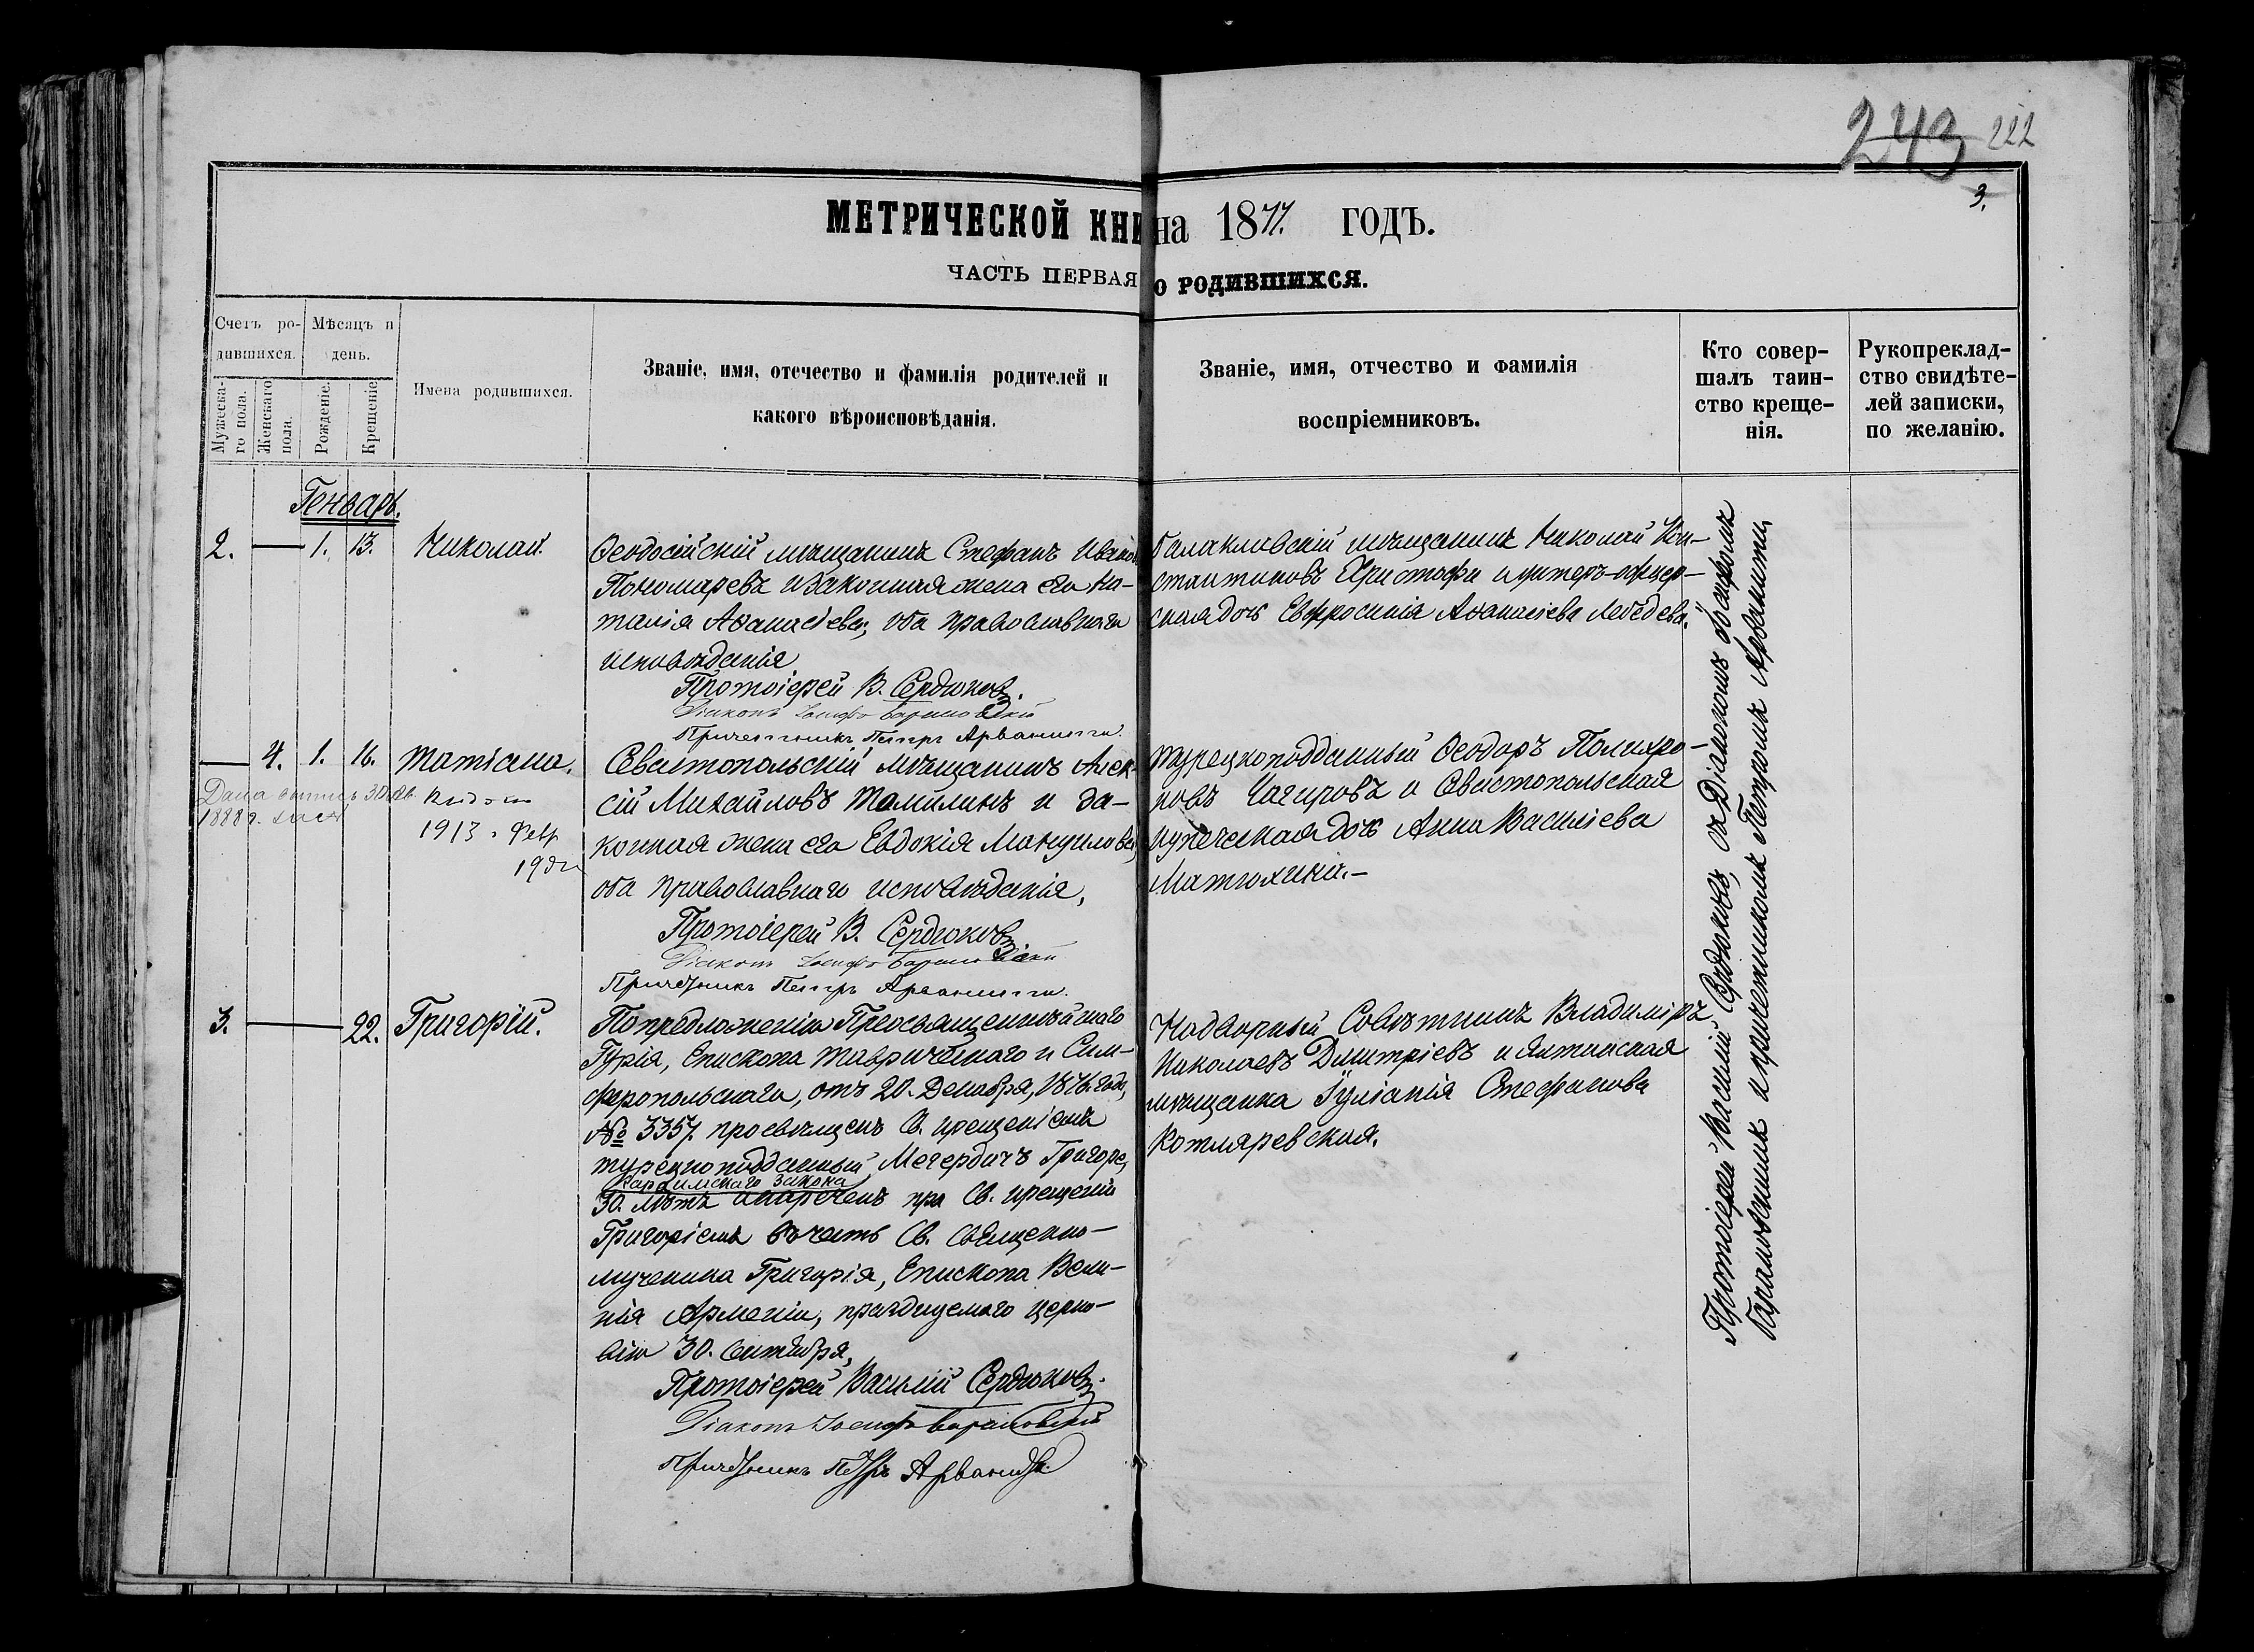 243 222
3.
МЕТРИЧЕСКОЙ КНИ на 1877. ГОДЪ.
ЧАСТЬ ПЕРВАЯ О РОДИВШИХСЯ.
Счетъ ро-
дившихся.
Мужеска-
го пола.
Женскаго
пола.
Мѣсяцъ и
день.
Рожденіе.
Крещеніе.
Имена родившихся.
Званіе, имя, отечество и фамилія родителей и
какого вѣроисповѣданія.
Званіе, имя, отчество и фамилія
воспріемниковъ.
Кто совер-
шалъ таин-
ство креще-
нія.
Рукопреклад-
ство свидѣте-
лей записки,
по желанію.
Генварь.
2. — 1. 13. Николай.
Ѳеодосійскій мѣщанинъ Стефанъ Иванов
Пономаревъ и законная жена его На-
талія Аѳанасіева, оба православнаго
исповѣданія
Протоіерей В. Сердюковъ.
Діаконъ Іосифъ Барановскій
Причетникъ Петръ Арванити.
Балаклавскій мѣщанинъ Николай Кон-
стантиновъ Христофи и унтеръ-офицер-
ская дочь Евфросинія Аѳанасіева Лебедева.
— 4. 1. 16. Татіана.
Дана выпись
1888 г.
1913 г. Февр
19 дн
Севастопольскій мѣщанинъ Алек-
сій Михайловъ Талилинъ и за-
конная жена его Евдокія Мануилова,
оба православнаго исповѣданія,
Протоіерей В. Сердюковъ
Діаконъ Іосифъ Барановскій
Причетникъ Петръ Арванити.
Турецкоподданный Ѳеодоръ Полихро-
новъ Чагировъ и Севастопольская
купеческая дочь Анна Василіева
Матюхина.—
3. — 22. Григорій.
По предложенію Преосвященнѣйшаго
Гурія, Епископа Таврическаго и Сим-
феропольскаго, отъ 20. Декабря, 1876. года,
№ 3357. просвѣщенъ Св. крещеніемъ
турецкоподданный, Мегердичъ Григоре,
закона
30. лѣтъ и нареченъ при Св. крещеніи
Григоріемъ въ честь Св. Священно-
мученика Григорія, Епископа Вели-
кія Арменіи, празднуемаго церко-
вію 30. Сентября,
Протоіерей Василій Сердюковъ.
Діаконъ Іосифъ Барановскій
Причетникъ Петръ Арванити
Надворный Совѣтникъ Владиміръ
Николаевъ Димитріевъ и Ялтинская
мѣщанка Іуліанія Стефанова
Котляревская.
Протоіерей Василій Сердюковъ, съ Діакономъ Іосифомъ
Барановскимъ и причетникомъ Петромъ Арванити,